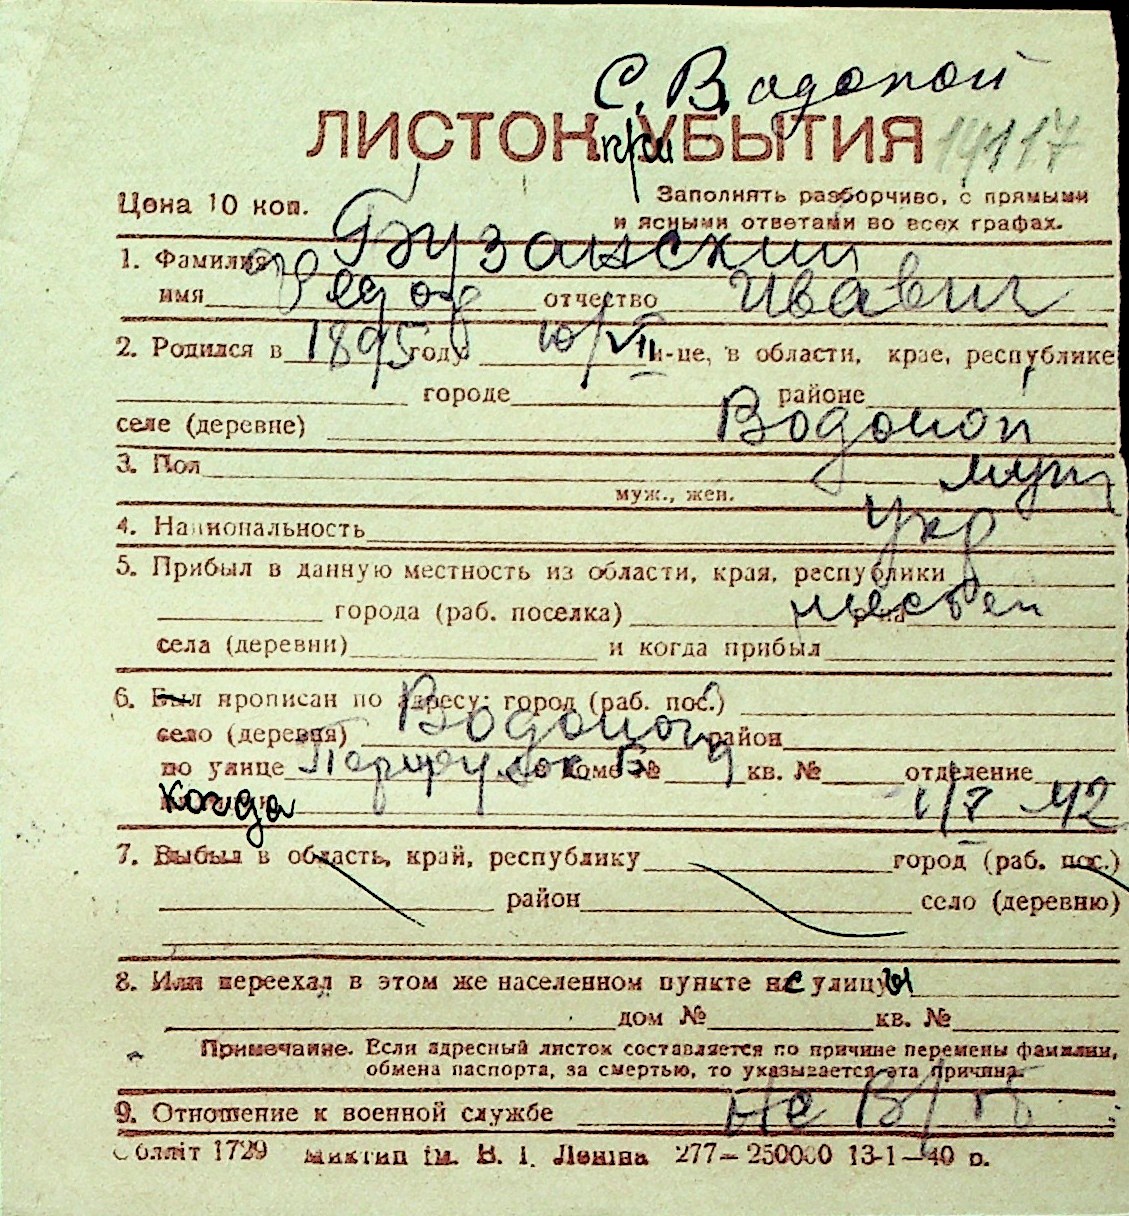 С. Водопой
ЛИСТОК УБЫТИЯ 14117
при
Цена 10 коп. Заполнять разборчиво, с прямыми
и ясными ответами во всех графах.
1. Фамилия Бузанский
имя Федор отчество Иванич
2. Родился в 1895 году 10/VII м-це, в области, крае, республике
городе районе
селе (деревне) Водопоп
3. Пол муж
муж., жен.
4. Национальность укр
5. Прибыл в данную местность из области, края, республики
города (раб. поселка) местеп р-на
села (деревни) и когда прибыл
6. Был прописан по адресу: город (раб. пос.)
село (деревня) Водопой район
по улице доме № кв. № отделение
когда 1/X 42
7. Выбыл в область, край, республику город (раб. пос.)
район село (деревню)
8. Или переехал в этом же населенном пункте не улицы
дом № кв. №
Примечание. Если адресный листок составляется по причине перемены фамилии,
обмена паспорта, за смертью, то указывается эта причина.
9. Отношение к военной службе не в/об
Облліт 1729 Миктип ім. В. І. Леніна 277—250000 13-1—40 р.